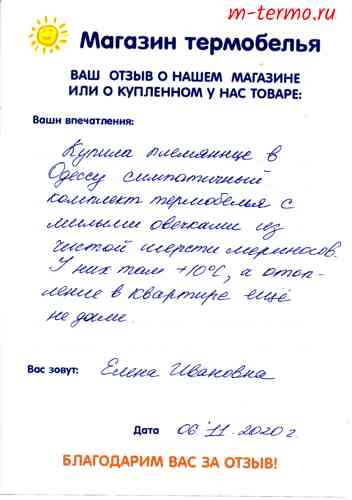 m-termo.ru
Магазин термобелья
ВАШ ОТЗЫВ О НАШЕМ МАГАЗИНЕ
ИЛИ О КУПЛЕННОМ У НАС ТОВАРЕ:
Ваши впечатления:
Купила племяннце в
Одессу симпатичный
комплект термобелья с
милыми овечками из
чистой шерсти мериносов.
У них там +10°С, а отоп-
ление в квартире ещё
не дали.
Вас зовут: Елена Ивановна
Дата 06.11.2020 г.
БЛАГОДАРИМ ВАС ЗА ОТЗЫВ!